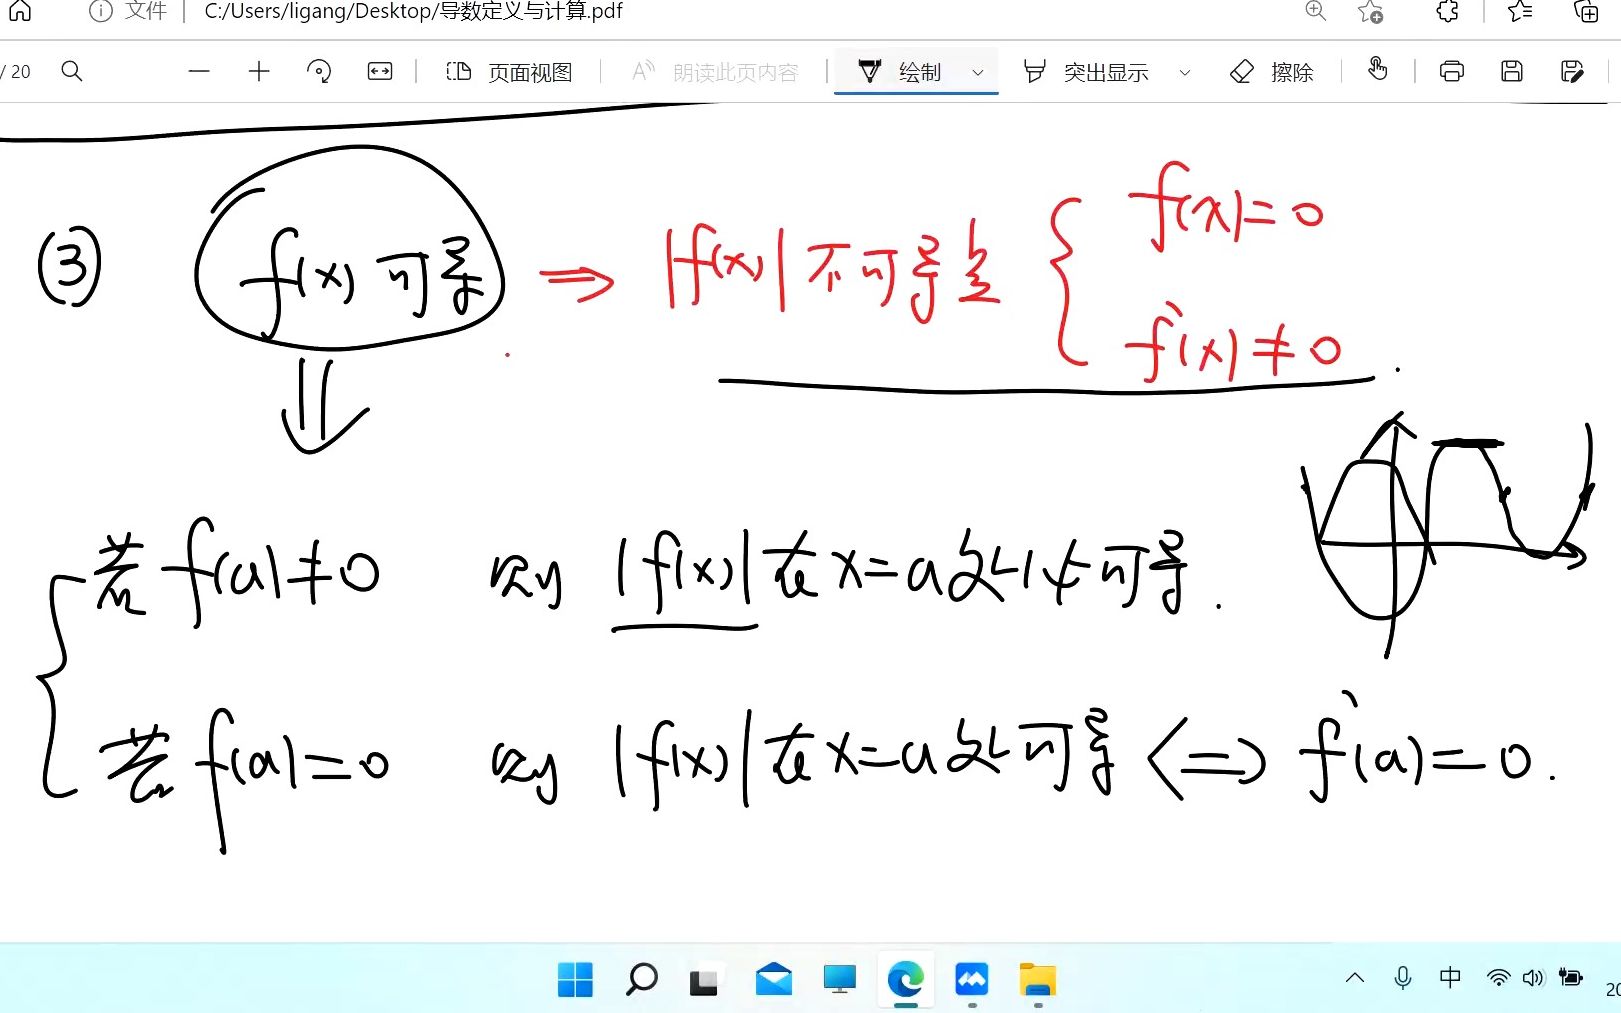 文件 C:/Users/ligang/Desktop/导数定义与计算.pdf
/ 20 页面视图 朗读此页内容 绘制 突出显示 擦除
(3) f(x) 可导 ⇒ |f(x)| 不可导点 { f(x)=0
f'(x)≠0
若 f(a)≠0 则 |f(x)| 在 x=a 处必可导.
若 f(a)=0 则 |f(x)| 在 x=a 处可导 <=> f'(a)=0.
中
20